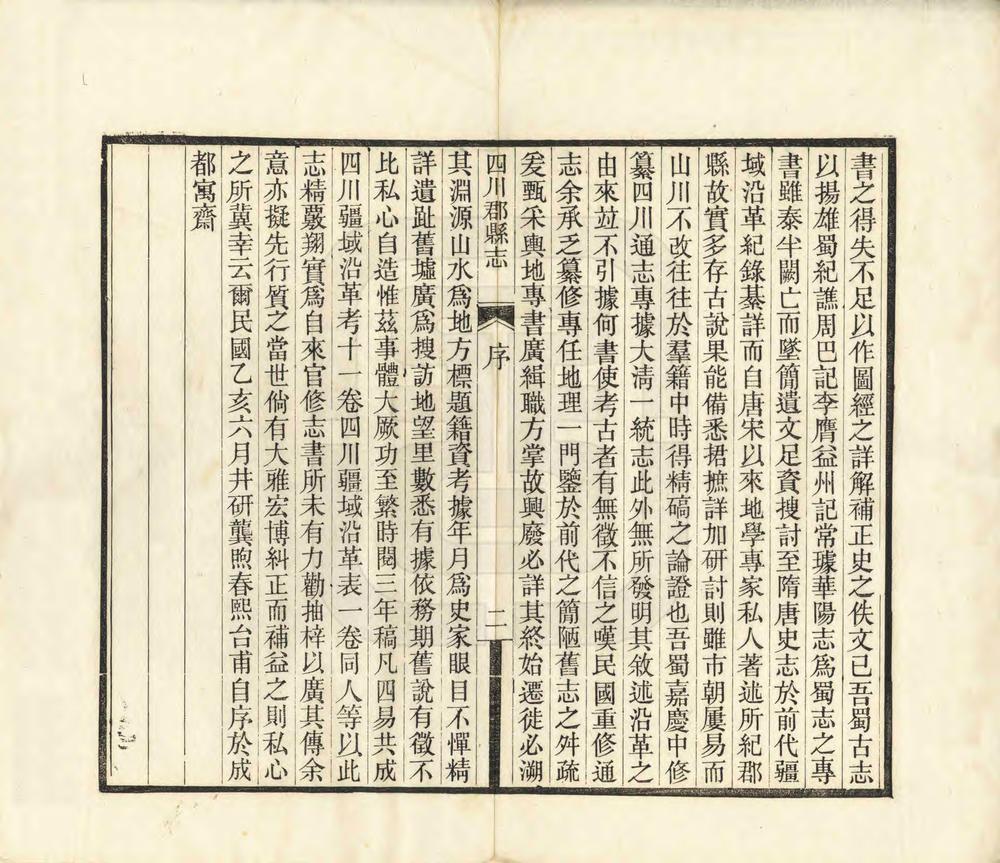 書之得失不足以作圖經之詳解補正史之佚文已吾蜀古志
以揚雄蜀紀譙周巴記李膺益州記常璩華陽志爲蜀志之專
書雖泰半闕亡而墜簡遺文足資搜討至隋唐史志於前代疆
域沿革紀錄綦詳而自唐宋以來地學專家私人著述所紀郡
縣故實多存古說果能備悉捃摭詳加研討則雖市朝屢易而
山川不改往往於羣籍中時得精碻之論證也吾蜀嘉慶中修
纂四川通志專據大淸一統志此外無所發明其敘述沿革之
由來竝不引據何書使考古者有無徵不信之嘆民國重修通
志余承乏纂修專任地理一門鑒於前代之簡陋舊志之舛疏
爰甄采輿地專書廣緝職方掌故興廢必詳其終始遷徙必溯
四川郡縣志 序 二
其淵源山水爲地方標題籍資考據年月爲史家眼目不憚精
詳遺趾舊墟廣爲搜訪地望里數悉有據依務期舊說有徵不
比私心自造惟茲事體大厥功至繁時閱三年稿凡四易共成
四川疆域沿革考十一卷四川疆域沿革表一卷同人等以此
志精覈翔實爲自來官修志書所未有力勸抽梓以廣其傳余
意亦擬先行質之當世倘有大雅宏博糾正而補益之則私心
之所冀幸云爾民國乙亥六月井研龔煦春熙台甫自序於成
都寓齋